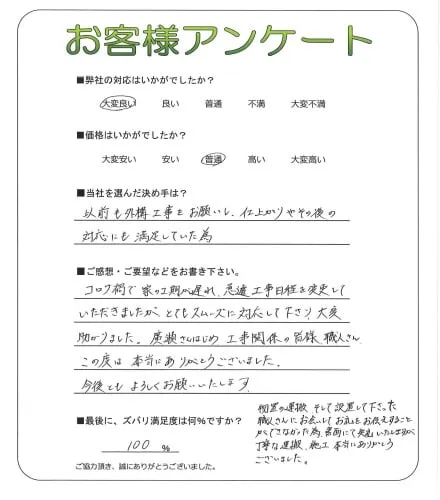 お客様アンケート
■弊社の対応はいかがでしたか？
大変良い 良い 普通 不満 大変不満
■価格はいかがでしたか？
大変安い 安い 普通 高い 大変高い
■当社を選んだ決め手は？
以前も外構工事をお願いし、仕上がりやその後の
対応にも満足していた為
■ご感想・ご要望などをお書き下さい。
コロナ禍で家の工期が遅れ、急遽工事日程を変更して
いただきましたが、とてもスムーズに対応して下さり、大変
助かりました。廣瀬さんはじめ工事関係の皆様、職人さん、
この度は本当にありがとうございました。
今後ともよろしくお願いいたします。
■最後に、ズバリ満足度は何％ですか？
100 %
ご協力頂き、誠にありがとうございました。
物置の運搬、そして設置して下さった
職人さんにお会いしてお礼をお伝えすること
ができなかった為、書面にて失礼いたしますが
丁寧な運搬、施工本当にありがとう
ございました。